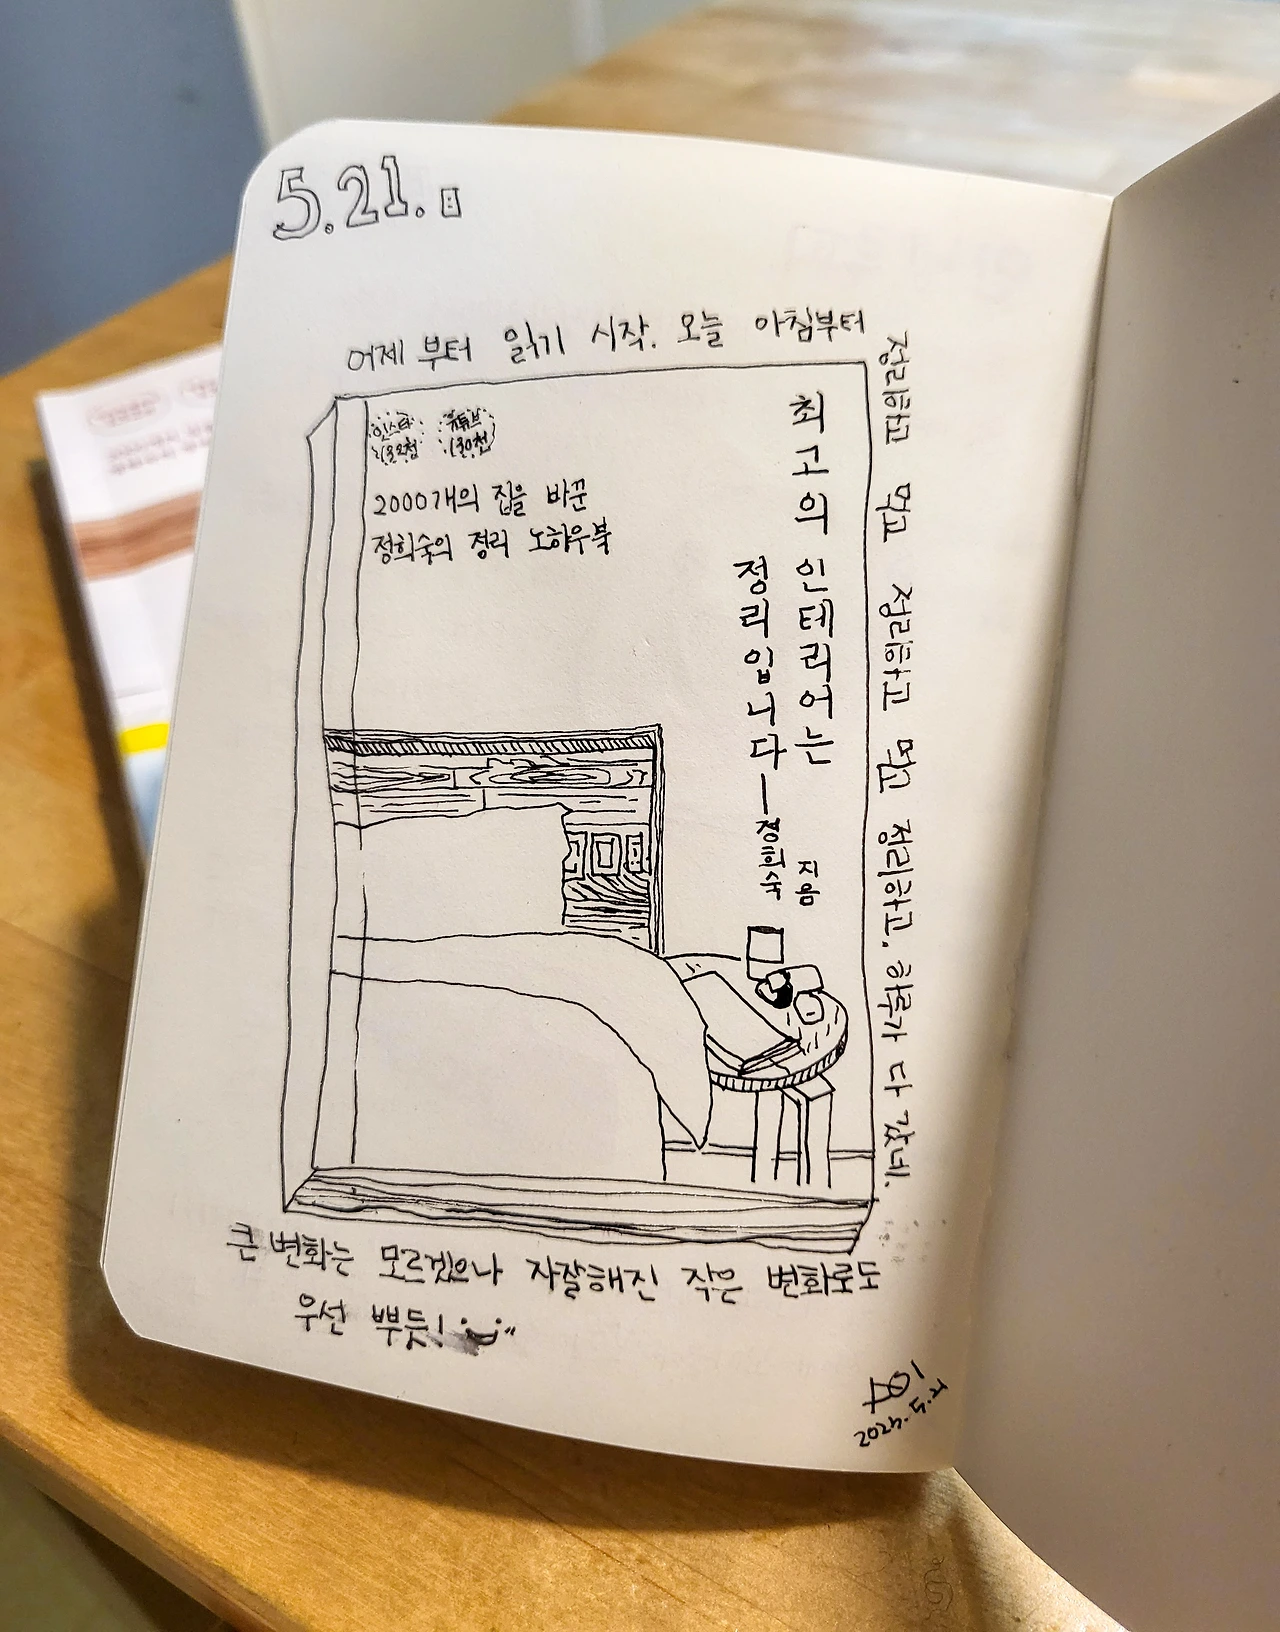 5.21.
어제부터 읽기 시작. 오늘 아침부터
정리하고 먹고 정리하고 먹고 정리하고. 하루가 다 갔네.
인스타
유튜브
2000개의 집을 바꾼
정희숙의 정리 노하우북
최고의 인테리어는
정리입니다 — 정희숙
지음
큰 변화는 모르겠으나 자잘해진 작은 변화로도
우선 뿌듯!